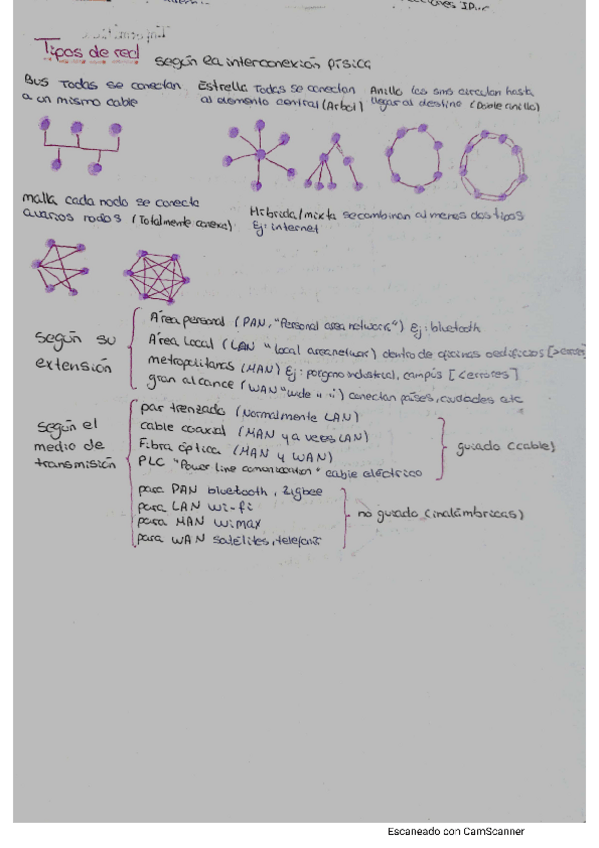 Tipos de red según la interconexión física
Bus Todas se conectan
a un mismo cable
Estrella Todas se conectan
al elemento central (Arbol)
Anillo las sms circulan hasta
llegar al destino (Doble anillo)
malla cada nodo se conecta
a varios nodos (Totalmente conexa)
Híbrida/mixta se combinan al menos dos tipos
Ej: internet
según su
extensión
Área personal (PAN, "Personal area network") Ej: bluetooth
Área Local (LAN "local area networ) dentro de oficinas o edificios
metropolitanas (MAN) Ej: poígono industrial, campus [< errores]
gran alcance (WAN "wide " ") conectan países, ciudades etc
según el
medio de
transmisión
par trenzado (Normalmente LAN)
cable coaxial (MAN y a veces LAN)
Fibra óptica (MAN y WAN)
PLC "Power line comunication" cable eléctrico
guiado (cable)
para PAN bluetooth, zigbee
para LAN wi-fi
para MAN wimax
para WAN satélites,
no guiado (inalámbricas)
Escaneado con CamScanner